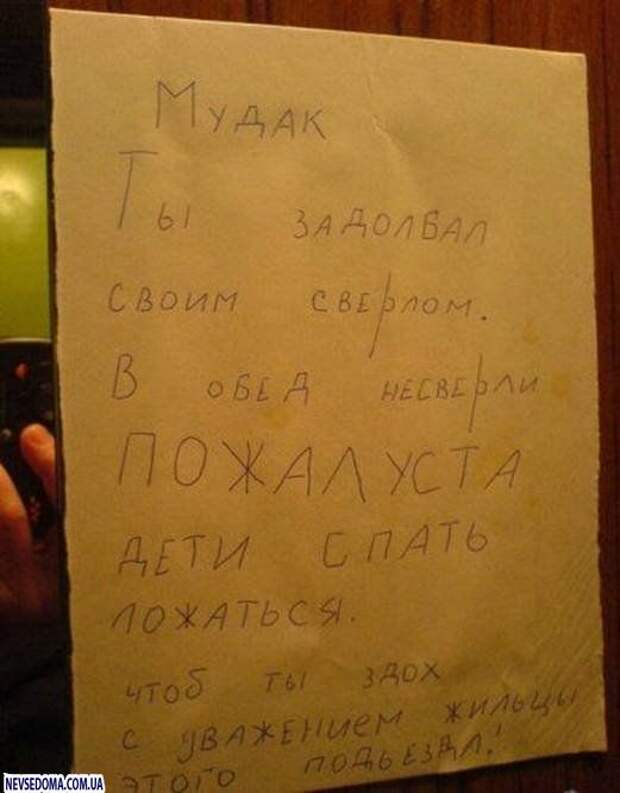 Мудак
Ты задолбал
своим сверлом.
В обед несверли
ПОЖАЛУСТА
дети спать
ложаться.
чтоб ты здох
с уважением жильцы
этого подьезда!
NEVSEDOMA.COM.UA